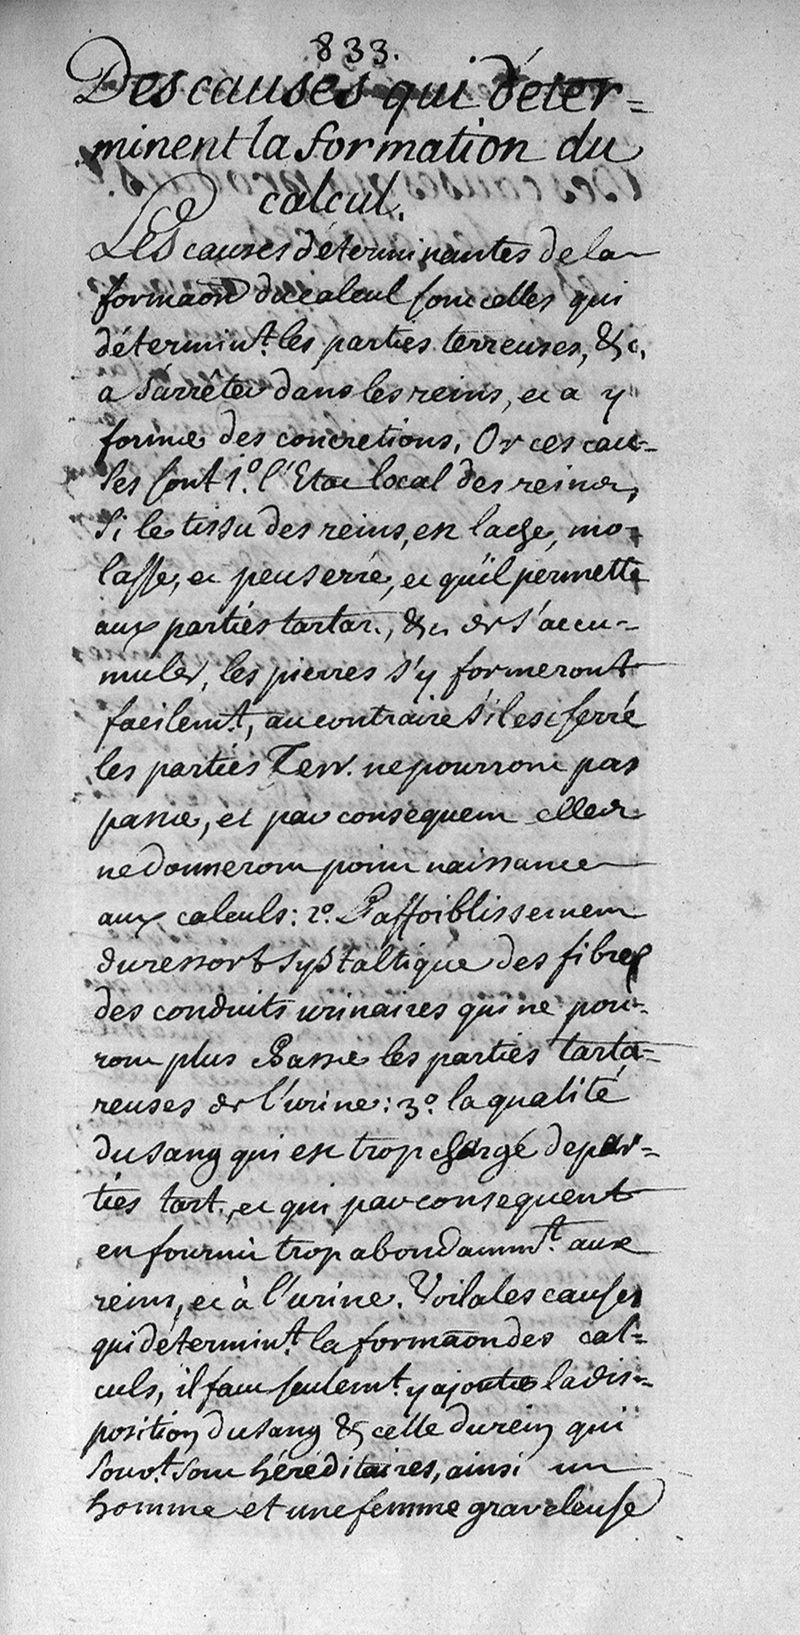 833.
Des causes qui déter=
minent la formation du
calcul.
Les causes déterminantes de la
formaõn du calcul sont celles qui
détermint. les parties terreuses, &c,
a s'arrêter dans les reins, et a y
former des concretions, Or ces cau=
ses sont 1.º l'Etat local des reins,
Si le tissu des reins, est lache, mo=
lasse, et peu serré, et qu'il permette
aux parties tartar., &c. de s'accu=
muler, les pierres s'y formeront
facilemt., au contraire s'il est serré
les parties Terr. ne pourront pas
passer, et par consequent elles
ne donneront point naissance
aux calculs: 2.º L'affoiblissement
du ressort systaltique des fibres
des conduits urinaires qui ne pour=
ront plus Chasser les parties tarta=
reuses de l'urine: 3.º la qualité
du sang qui est trop chargé de par=
ties tart., et qui par consequent
en fournit trop abondammt. aux
reins, et à l'urine. Voila les causes
qui détermint. la formaõn des cal=
culs, il faut seulemt. y ajouter la dis=
position du sang & celle du rein qui
souvt. sont héréditaires, ainsi un
homme et une femme graveleuse